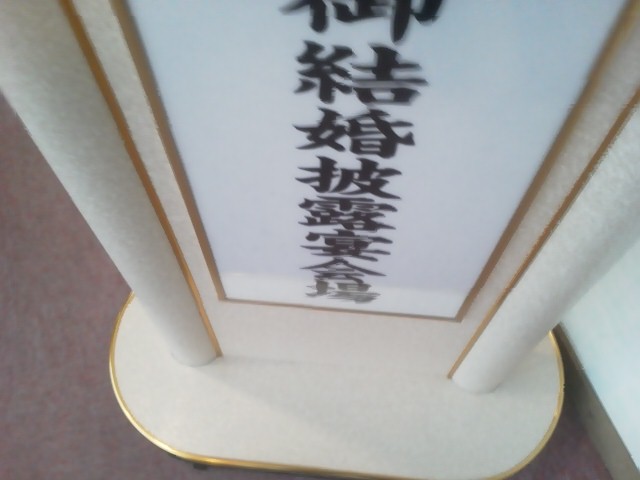 御結婚披露宴会場